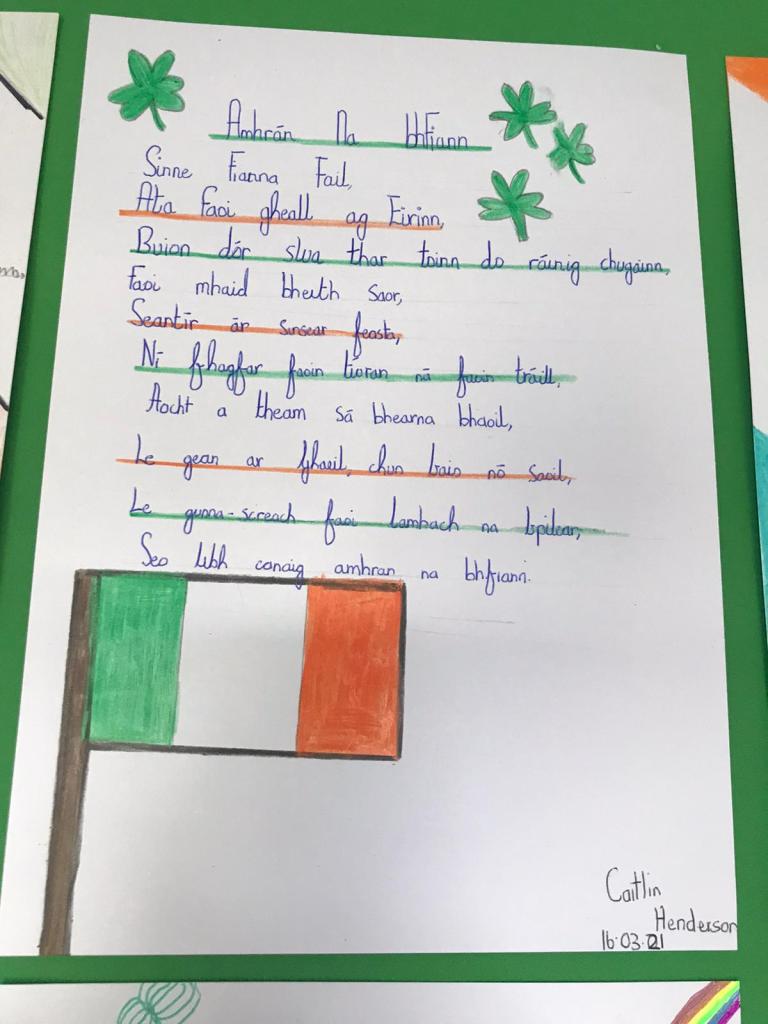 Amhrán Na bhFiann
Sinne Fianna Fail,
Ata faoi gheall ag Eirinn,
Buion dár slua thar toinn do ráinig chugainn,
Faoi mhaid bheith saor,
Seantír ár sinsear feasta,
Ní fhagfar faoin tíoran ná faoin tráill,
Aocht a theam sá bhearna bhaoil,
Le gean ar ghaeil, chun bais nó saoil,
Le gunna-screach faoi lambach na bpilear,
Seo libh conaig amhran na bhfiann.
Caitlin
Henderson
16.03.21